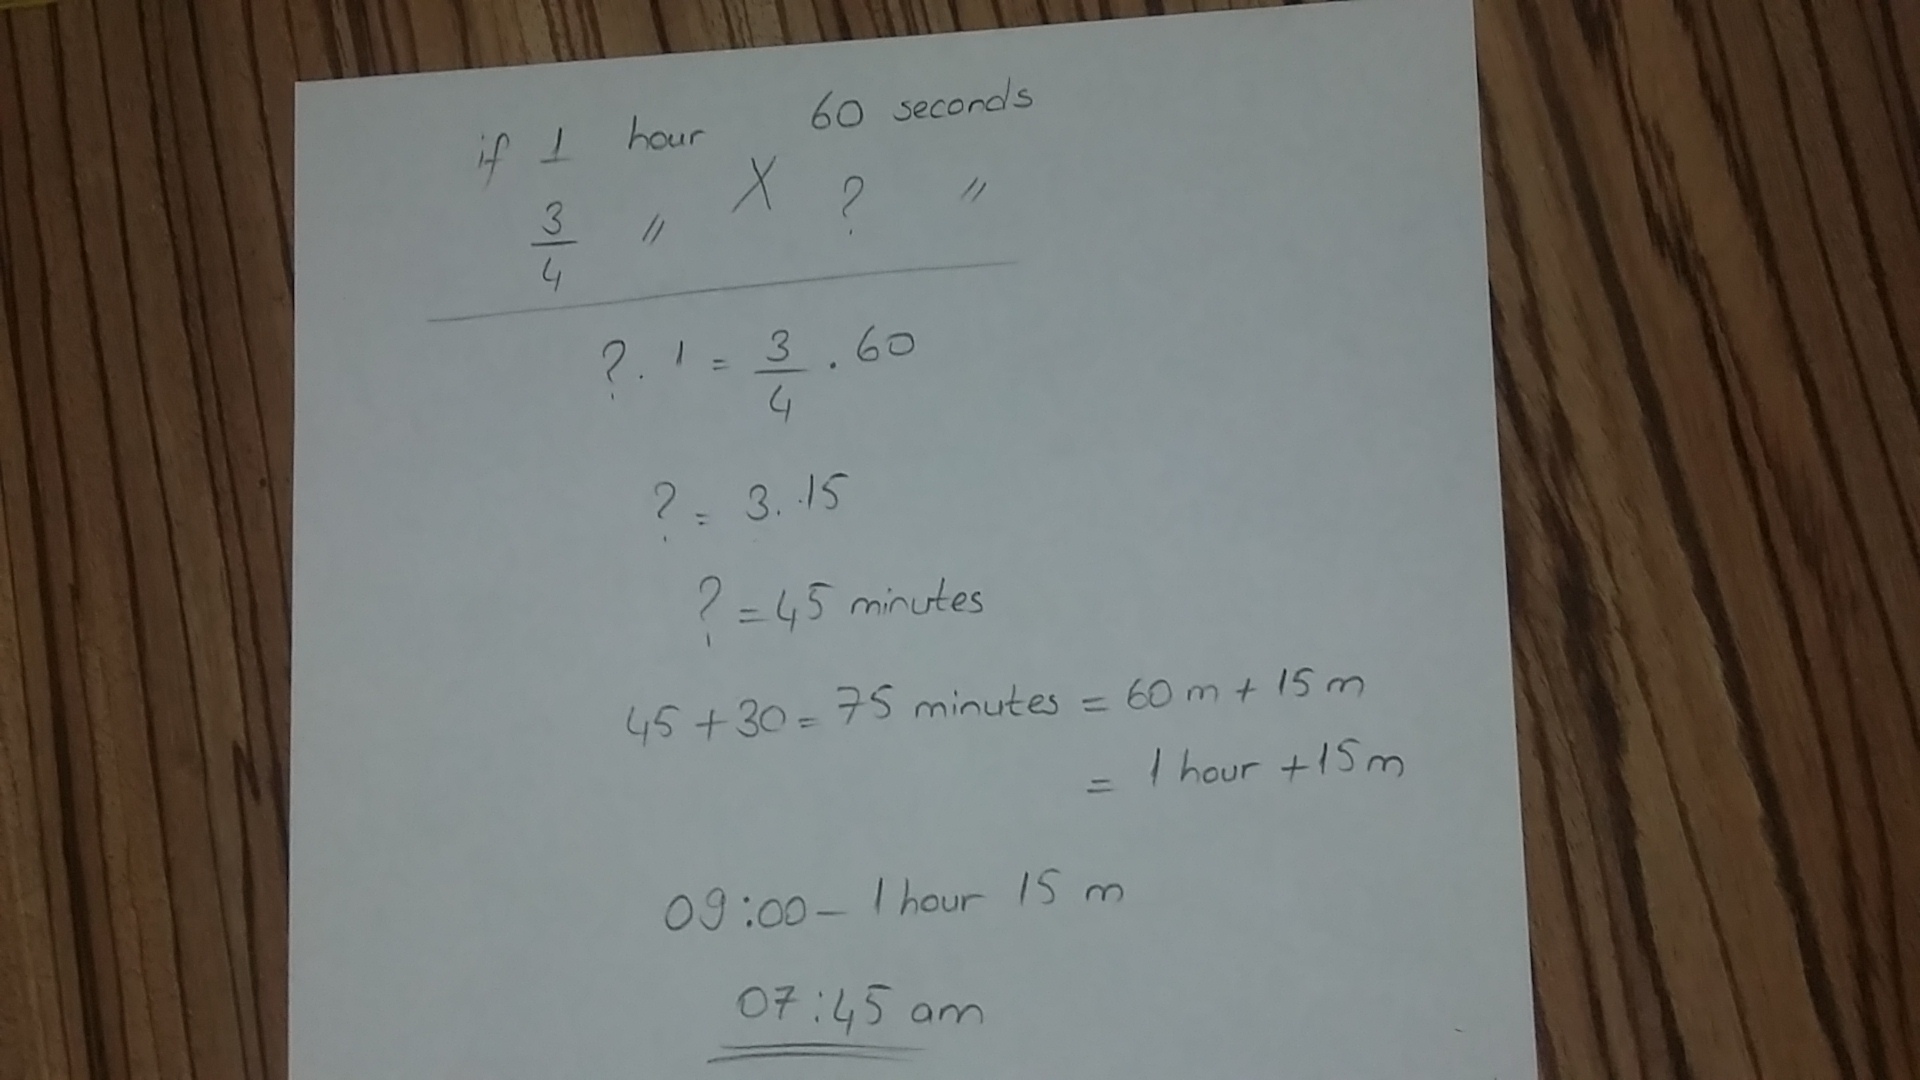 if 1 hour 60 seconds
3/4 " X ? "
? . 1 = 3/4 . 60
? = 3 . 15
? = 45 minutes
45 + 30 = 75 minutes = 60 m + 15 m
= 1 hour + 15 m
09:00 – 1 hour 15 m
07:45 am